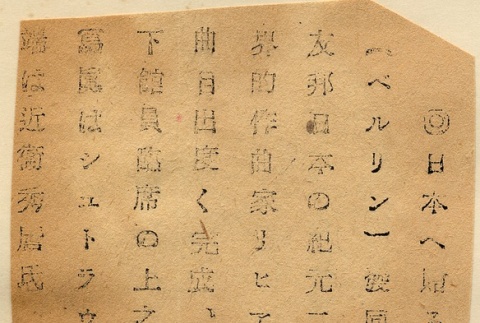 ◎日本へ贈る
(ベルリン)波同
友邦日本の紀元二
界的作曲家リヒア
曲目出度く完成、
下館員臨席の上之
寫眞はシュトラウ
端は近衛秀麿氏